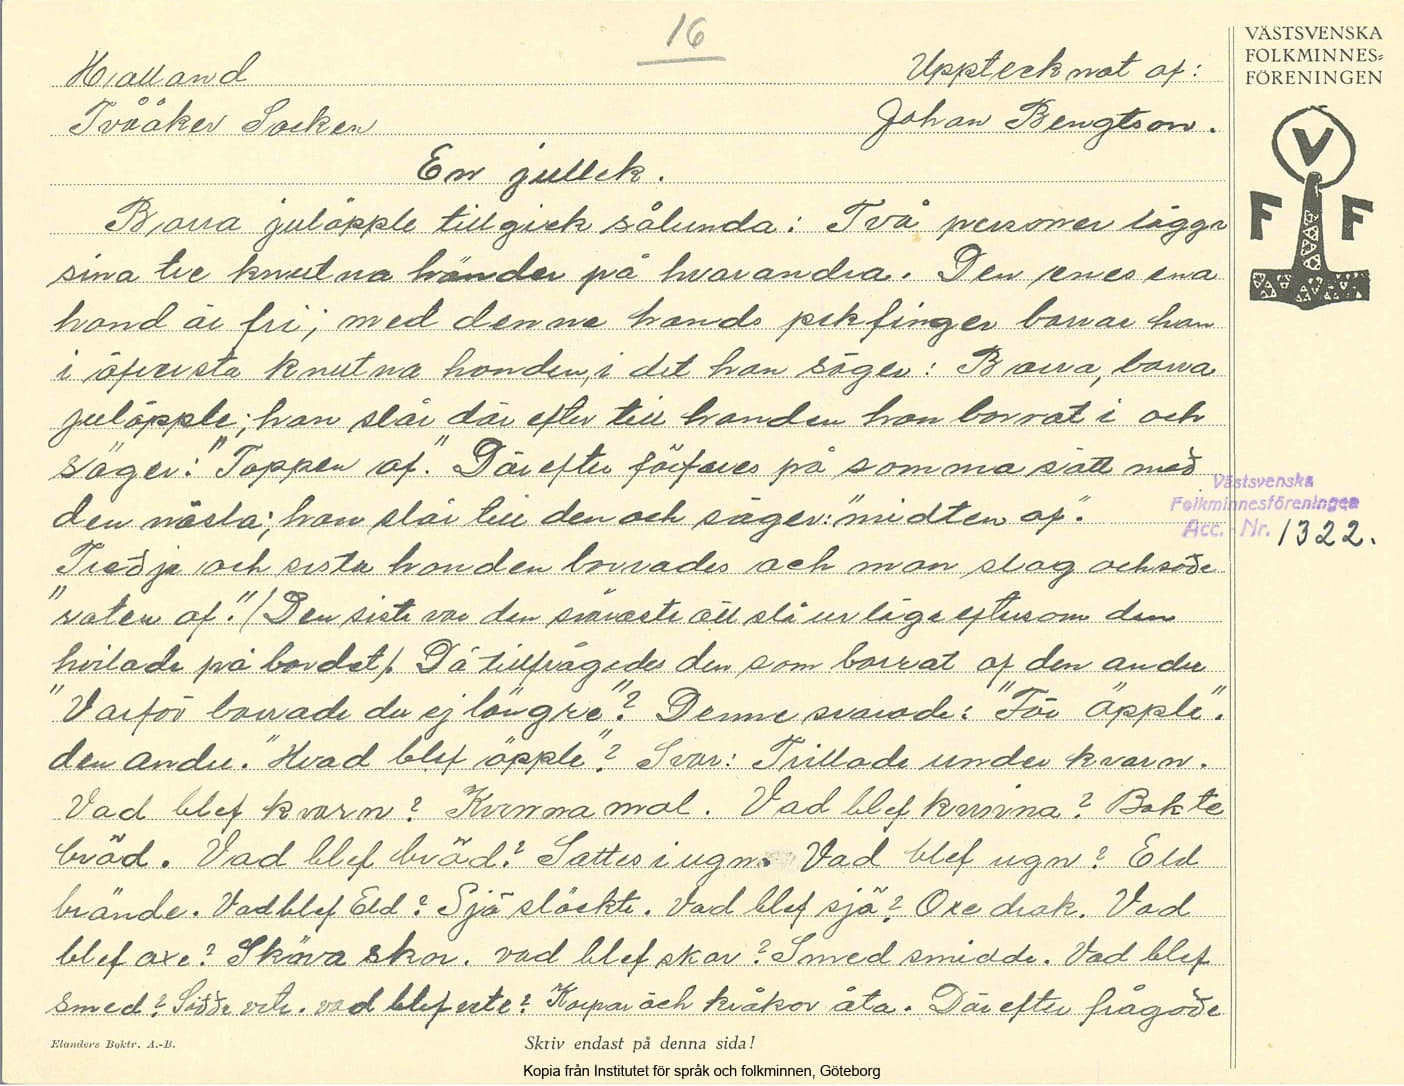 16
Halland
Upptecknat af:
Tvååker Socken
Johan Bengtson.
En jullek.
Borra juläpple tillgick sålunda: Två personer lägga
sina tre knutna händer på hvarandra. Den enes ena
hand är fri; med denna hands pekfinger borrar han
i öfversta knutna handen, i det han säger: Borra, borra
juläpple; han slår där efter till handen han borrat i och
säger: "Toppen af." Därefter förfares på samma sätt med
den nästa; han slår till den och säger: "midten af."
Tredje och sista handen borrades och man slog och sade
"roten af." /Den sista var den svåraste att slå ur läge eftersom den
hvilade på bordet/. Då tillfrågades den som borrat af den andre
"Varför borrade du ej längre"? Denne svarade: "För äpple".
den andre. "Hvad blef äpple"? Svar: Trillade under kvarn.
Vad blef kvarn? Kvinna mol. Vad blef kvinna? Bakte
bröd. Vad blef bröd? Sattes i ugn. Vad blef ugn? Eld
brände. Vad blef Eld? Sjö släckte. Vad blef sjö? Oxe drak. Vad
blef oxe? Skäva skor. vad blef skor? Smed smidde. Vad blef
smed? Sådde vete. vad blef vete? Korpar och kråkor åta. Där efter frågade
VÄSTSVENSKA
FOLKMINNES=
FÖRENINGEN
V
F F
Västsvenska
Folkminnesföreningen
Acc. - Nr. 1322.
Elanders Boktr. A.-B.
Skriv endast på denna sida!
Kopia från Institutet för språk och folkminnen, Göteborg